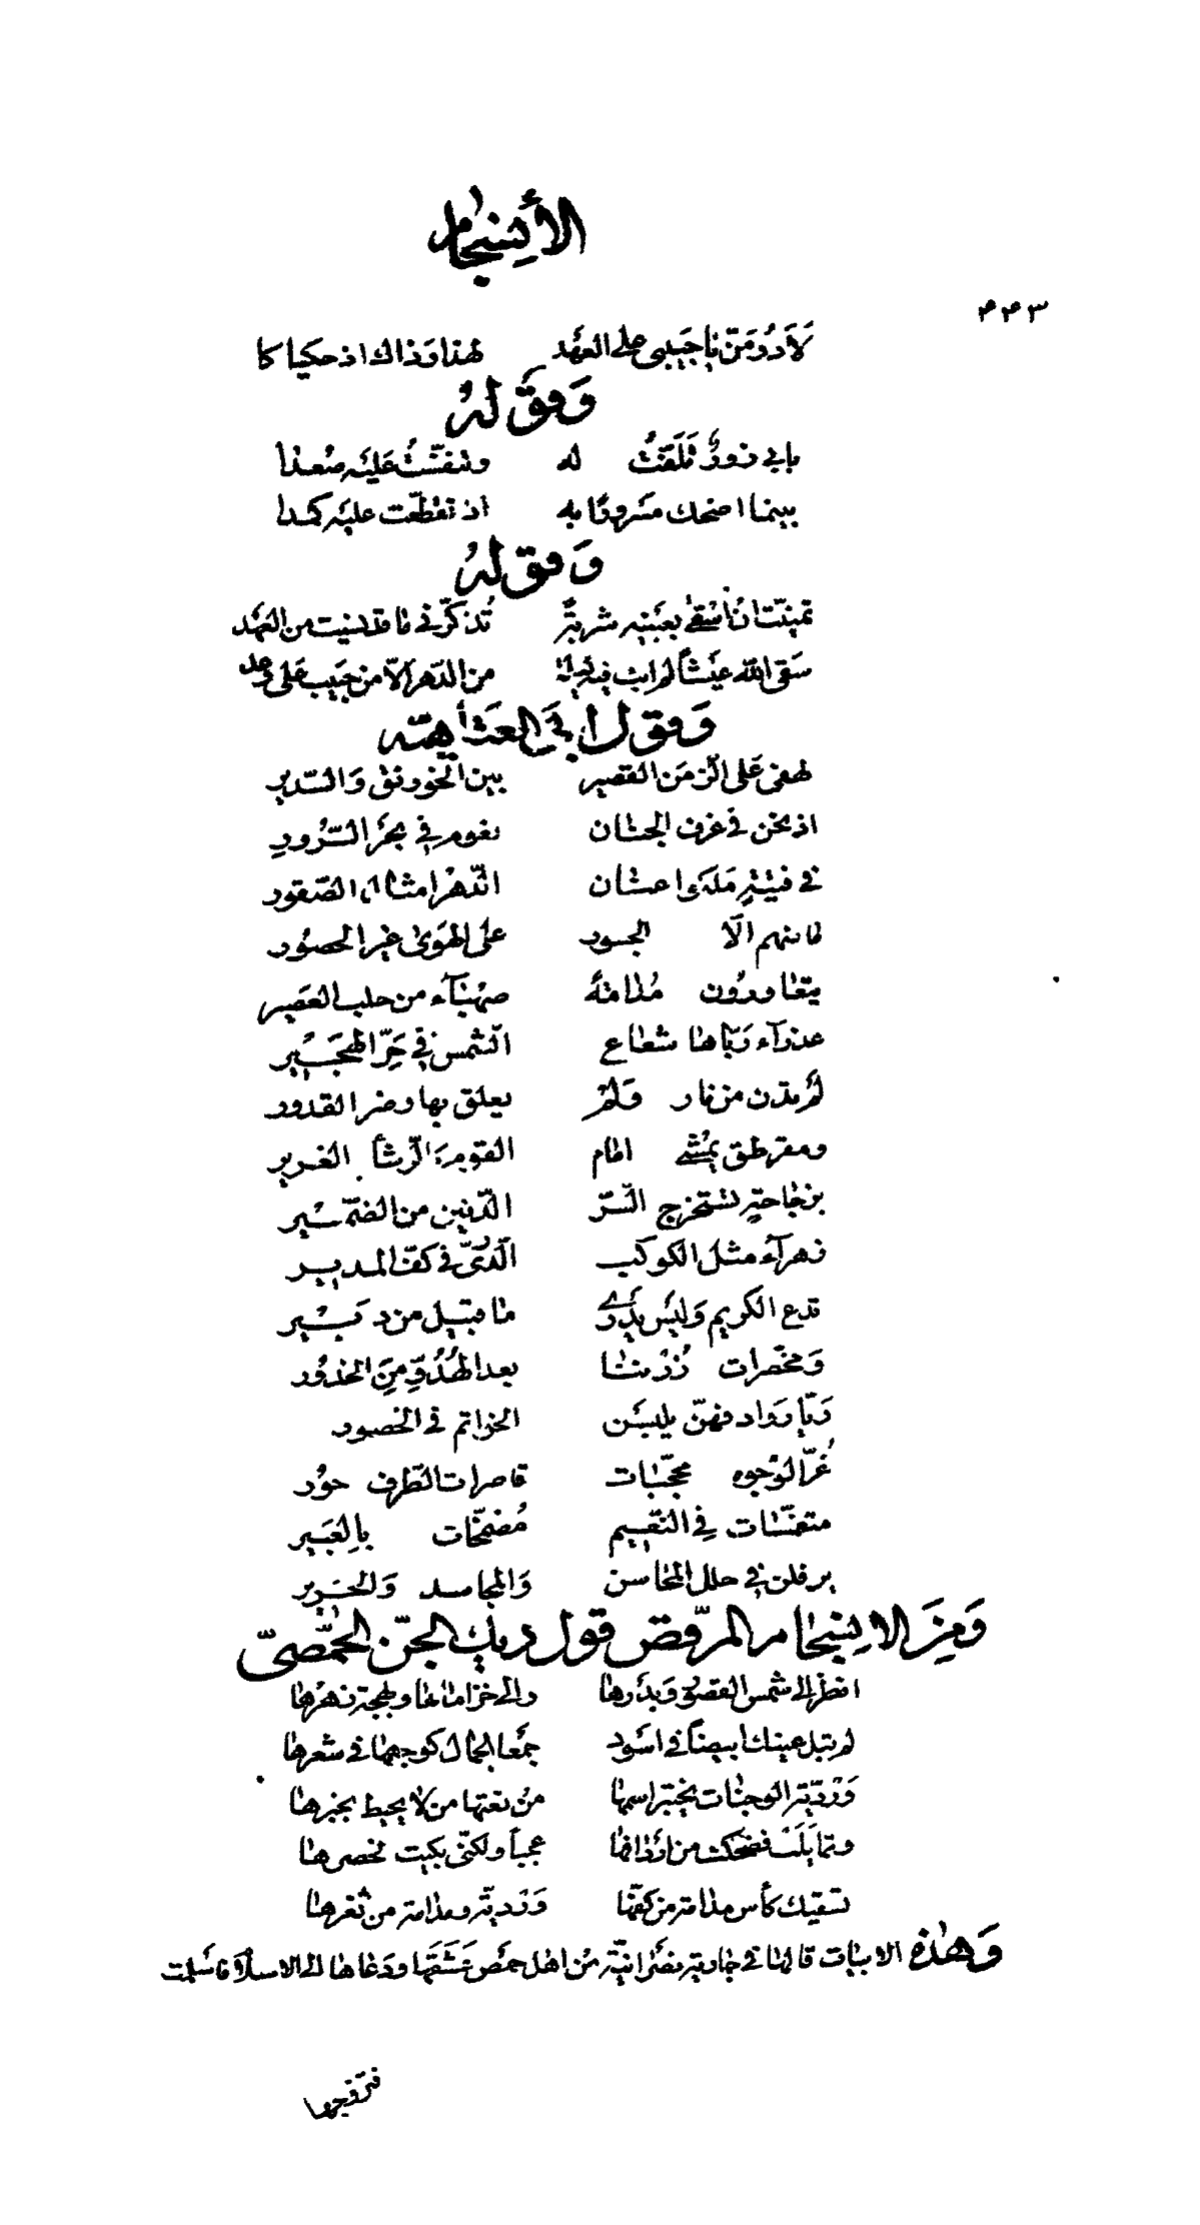 الأنسجام
٤٤٣
لأدومن يا حبيبي على العهد لهذا وذاك اذ حكياكا
وقوله
بابي زور تلفت له وتنفست عليه صعدا
بينما اضحك مسرورا به اذ تقطعت عليه كمدا
وقوله
تمنيت ان اسقى بعينيه شربة تذكرني ما قد نسيت من العهد
سقى الله عيشاً لم ابت فيه ليلة من الدهر الا من حبيب على وعد
وقول ابي العتاهية
لهفى على الزمن القصير بين الخورنق والسدير
اذ نحن في غرف الجنان نعوم في بحر السرور
في فتية ملكوا عنان الدهر امثال الصقور
ما منهم الا الجسور على الهوى غير الحصور
يتعاورون مدامة صهباء من حلب العصير
عذراء رباها شعاع الشمس في حر الهجير
لم تدن من نار ولم يعلق بها وضر القدور
ومقرطق يمشي امام القوم كالرشأ الغرير
بزجاجة تستخرج السر الدفين من الضمير
زهراء مثل الكوكب الدري في كف المدير
تدع الكريم وليس يدري ما قبيل من دبير
ومخصرات زرننا بعد الهدو من الخدور
ريا روادفهن يلبسن الخواتم في الخصور
غر الوجوه محجبات قاصرات الطرف حور
متنعمات في النعيم مضمخات بالعبير
يرفلن في حلل المحاسن والمجاسد والحرير
ومن الانسجام المرقص قول ديك الجن الحمصي
انظر الى شمس القصور وبدرها والى خزاماها وبهجة زهرها
لم تبل عينك ابيضاً في اسود جمع الجمال كوجهها في شعرها
وردية الوجنات يختبر اسمها من نعتها من لا يحيط بخبرها
وتمايلت فضحكت من اردافها عجباً ولكني بكيت لخصرها
تسقيك كأس مدامة من كفها وردية ومدامة من ثغرها
وهذه الابيات قالها في جارية نصرانية من اهل حمص عشقها ودعاها الى الاسلام فاسلمت
فتزوجها